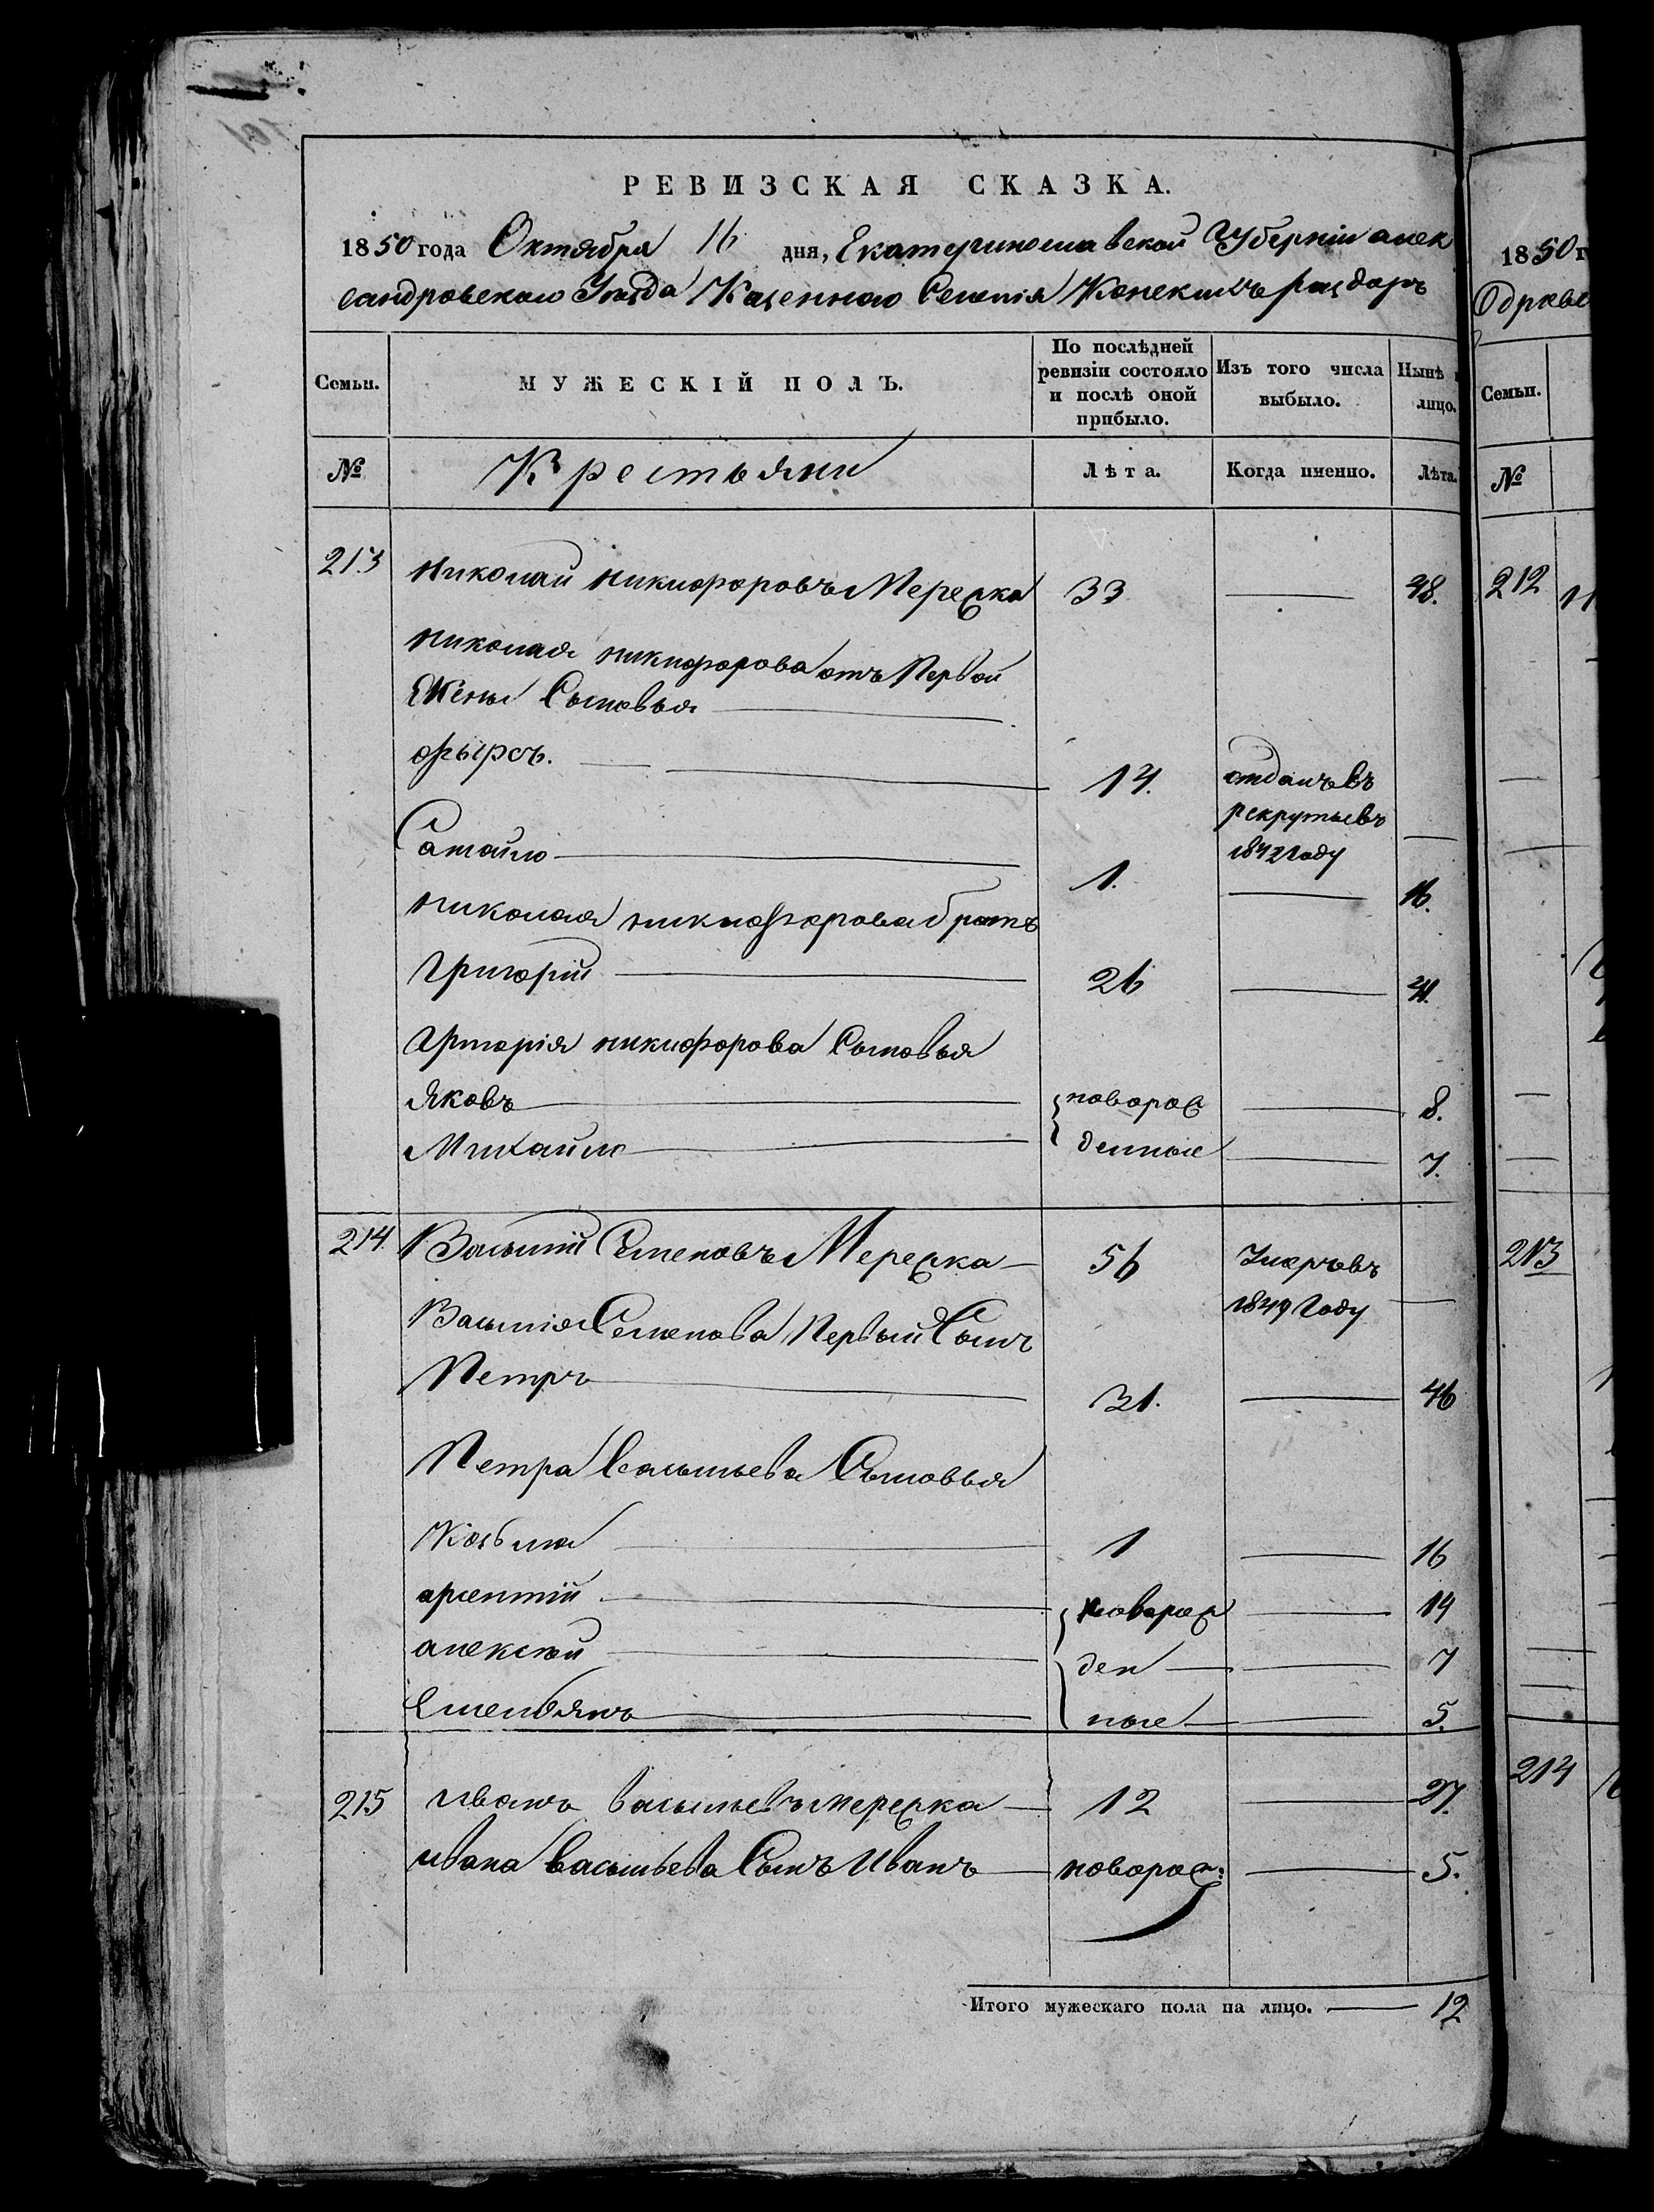 РЕВИЗСКАЯ СКАЗКА.
1850 года Октября 16 дня, Екатеринославской Губерніи алек
сандровскаго Уѣзда Казеннаго Селенія Конскихъ раздоръ
Семьи. МУЖЕСКІЙ ПОЛЪ. По послѣдней ревизіи состояло и послѣ оной прибыло. Изъ того числа выбыло. Нынѣ лицо.
№ Крестьяни Лѣта. Когда именно. Лѣта.
213 Николай никифоровъ Мережка 33 — 48.
Николая никифорова отъ Первой
Жены Сыновья
фырсъ. 14. отданъ въ
рекруты въ
1842 году
Самойло 1. — 16.
Николая никифорова братъ
Григорій 26 — 41.
Григорія никифорова Сыновья
Яковъ новорож — 8.
Михайло денные — 7.
214 Василій Семеновъ Мережка 56 Умеръ въ
1849 году
Василія Семенова Первый Сынъ
Петръ 31. — 46
Петра Васильева Сыновья
Козьма 1 — 16
арсентій новорож — 14
алексѣй ден — 7
Емельянъ ные — 5.
215 Иванъ васильевъ мережка 12 — 27.
ивана васильева Сынъ Иванъ новорож: — 5.
Итого мужескаго пола на лицо. — 12
1850 г
Семьи.
№
212
213
214